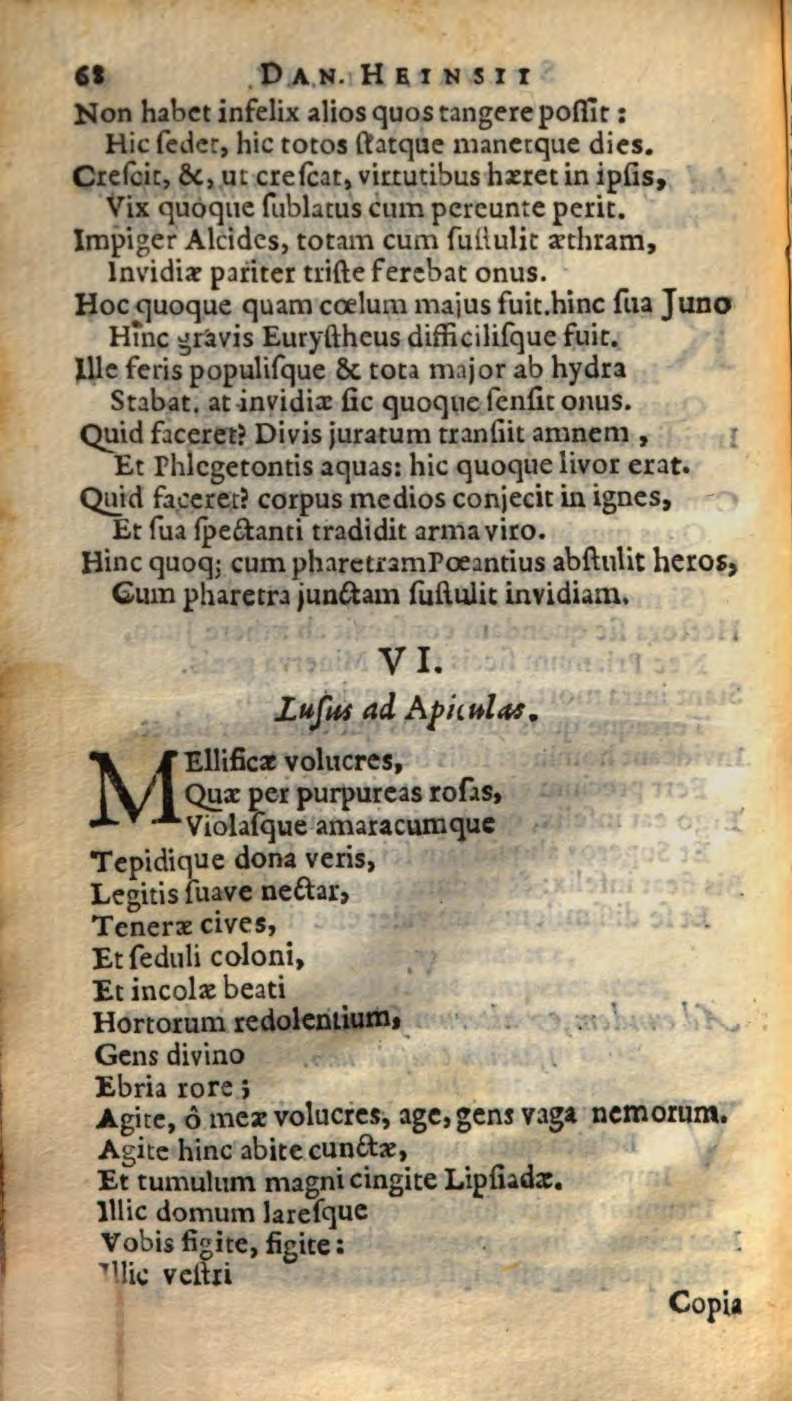 68 DAN. HEINSII
Non habet infelix alios quos tangere poſſit :
Hic ſedet, hic totos ſtatque manetque dies.
Creſcit, &, ut creſcat, virtutibus hæret in ipſis,
Vix quoque ſublatus cum pereunte perit.
Impiger Alcides, totam cum ſuſtulit æthram,
Invidiæ pariter triſte ferebat onus.
Hoc quoque quam cœlum majus fuit. hinc ſua Juno
Hinc gravis Euryſtheus difficiliſque fuit.
Ille feris populiſque & tota major ab hydra
Stabat. at invidiæ ſic quoque ſenſit onus.
Quid faceret? Divis juratum tranſiit amnem ,
Et Phlegetontis aquas: hic quoque livor erat.
Quid faceret? corpus medios conjecit in ignes,
Et ſua ſpectanti tradidit arma viro.
Hinc quoq; cum pharetram Pœantius abſtulit heros,
Cum pharetra junctam ſuſtulit invidiam.
VI.
Luſus ad Apiculas.
MEllificæ volucres,
Quæ per purpureas roſas,
Violaſque amaracumque
Tepidique dona veris,
Legitis ſuave nectar,
Teneræ cives,
Et ſeduli coloni,
Et incolæ beati
Hortorum redolentium,
Gens divino
Ebria rore ;
Agite, ô meæ volucres, age, gens vaga nemorum.
Agite hinc abite cunctæ,
Et tumulum magni cingite Lipſiadæ.
Illic domum lareſque
Vobis figite, figite :
Illic veſtri
Copia